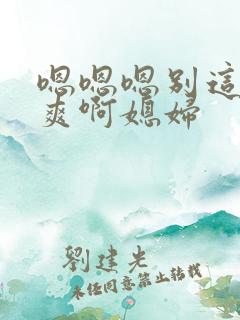 嗯嗯嗯别這
爽啊媳婦
劉建光
未经同意禁止转载